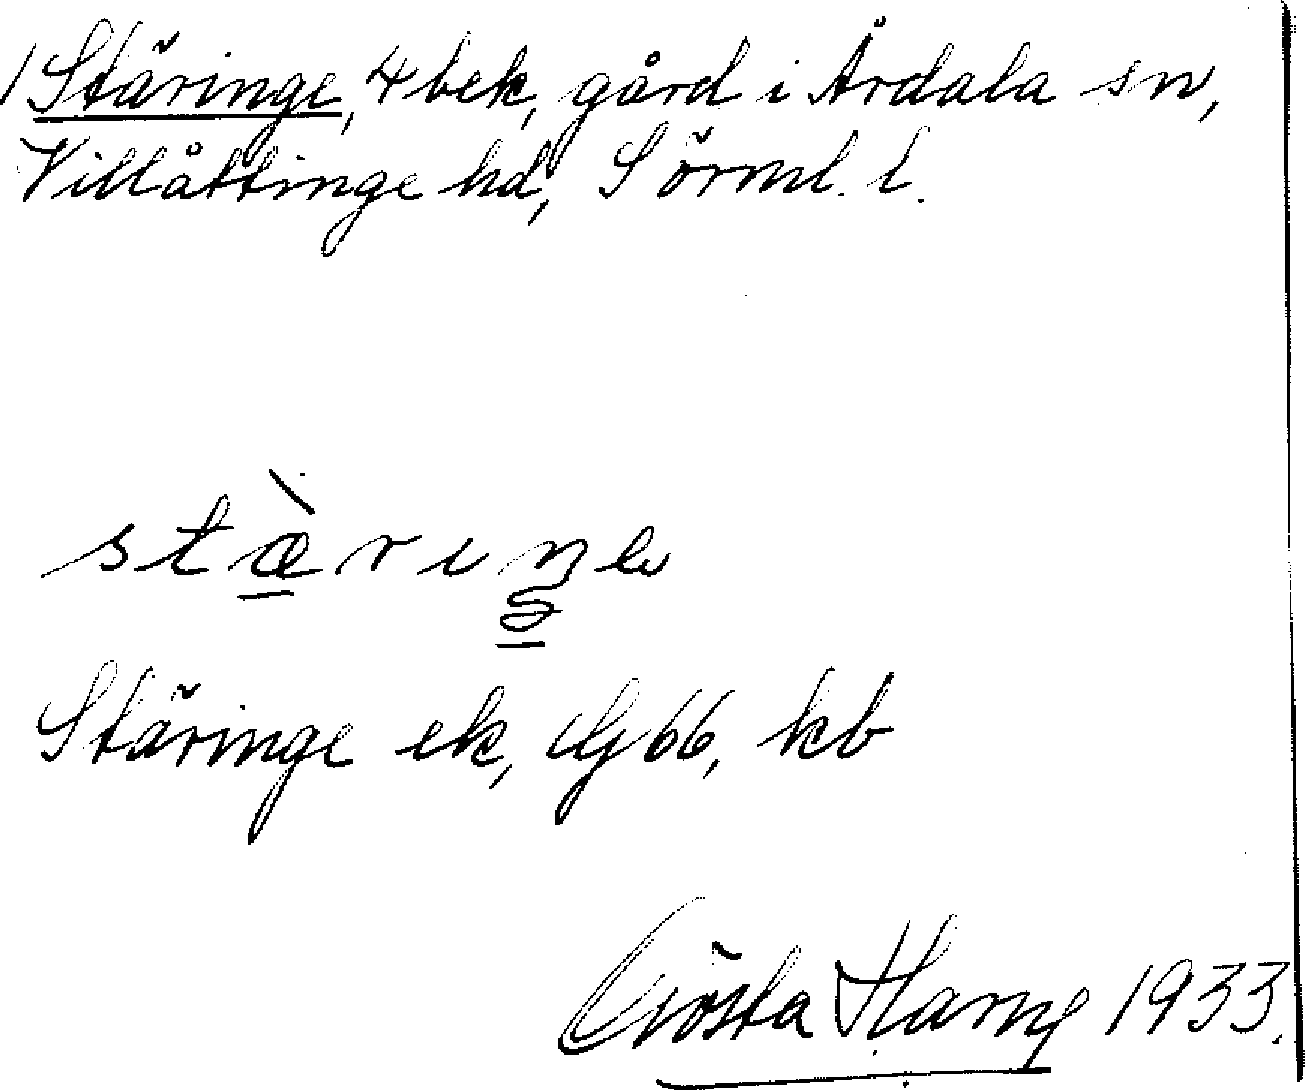 Stäringe, 4 bek, gård i Årdala sn,
Villåttinge hd, Sörml. l.
stæ̀riŋe
Stäringe ek, Gj 66, kb
Gösta 1933.